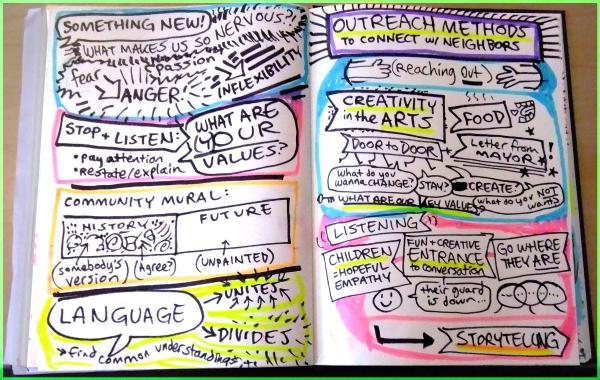 SOMETHING NEW!
WHAT MAKES US SO NERVOUS?!
fear
passion
ANGER
INFLEXIBILITY
STOP + LISTEN:
• pay attention
• restate/explain
WHAT ARE
YOUR
VALUES?
COMMUNITY MURAL:
HISTORY
FUTURE
(somebody's
version)
(Agree?)
(UNPAINTED)
LANGUAGE
UNITES
DIVIDES
find common understandings
OUTREACH METHODS
TO CONNECT W/ NEIGHBORS
(Reaching out)
CREATIVITY
in the ARTS
FOOD
DOOR to DOOR
Letter from
MAYOR!
what do you
wanna CHANGE?
STAY?
CREATE?
what do you NOT
want?
WHAT ARE OUR KEY VALUES?
LISTENING
CHILDREN
=HOPEFUL
EMPATHY
FUN + CREATIVE
ENTRANCE
to conversation
GO WHERE
THEY ARE
their guard
is down...
STORYTELLING